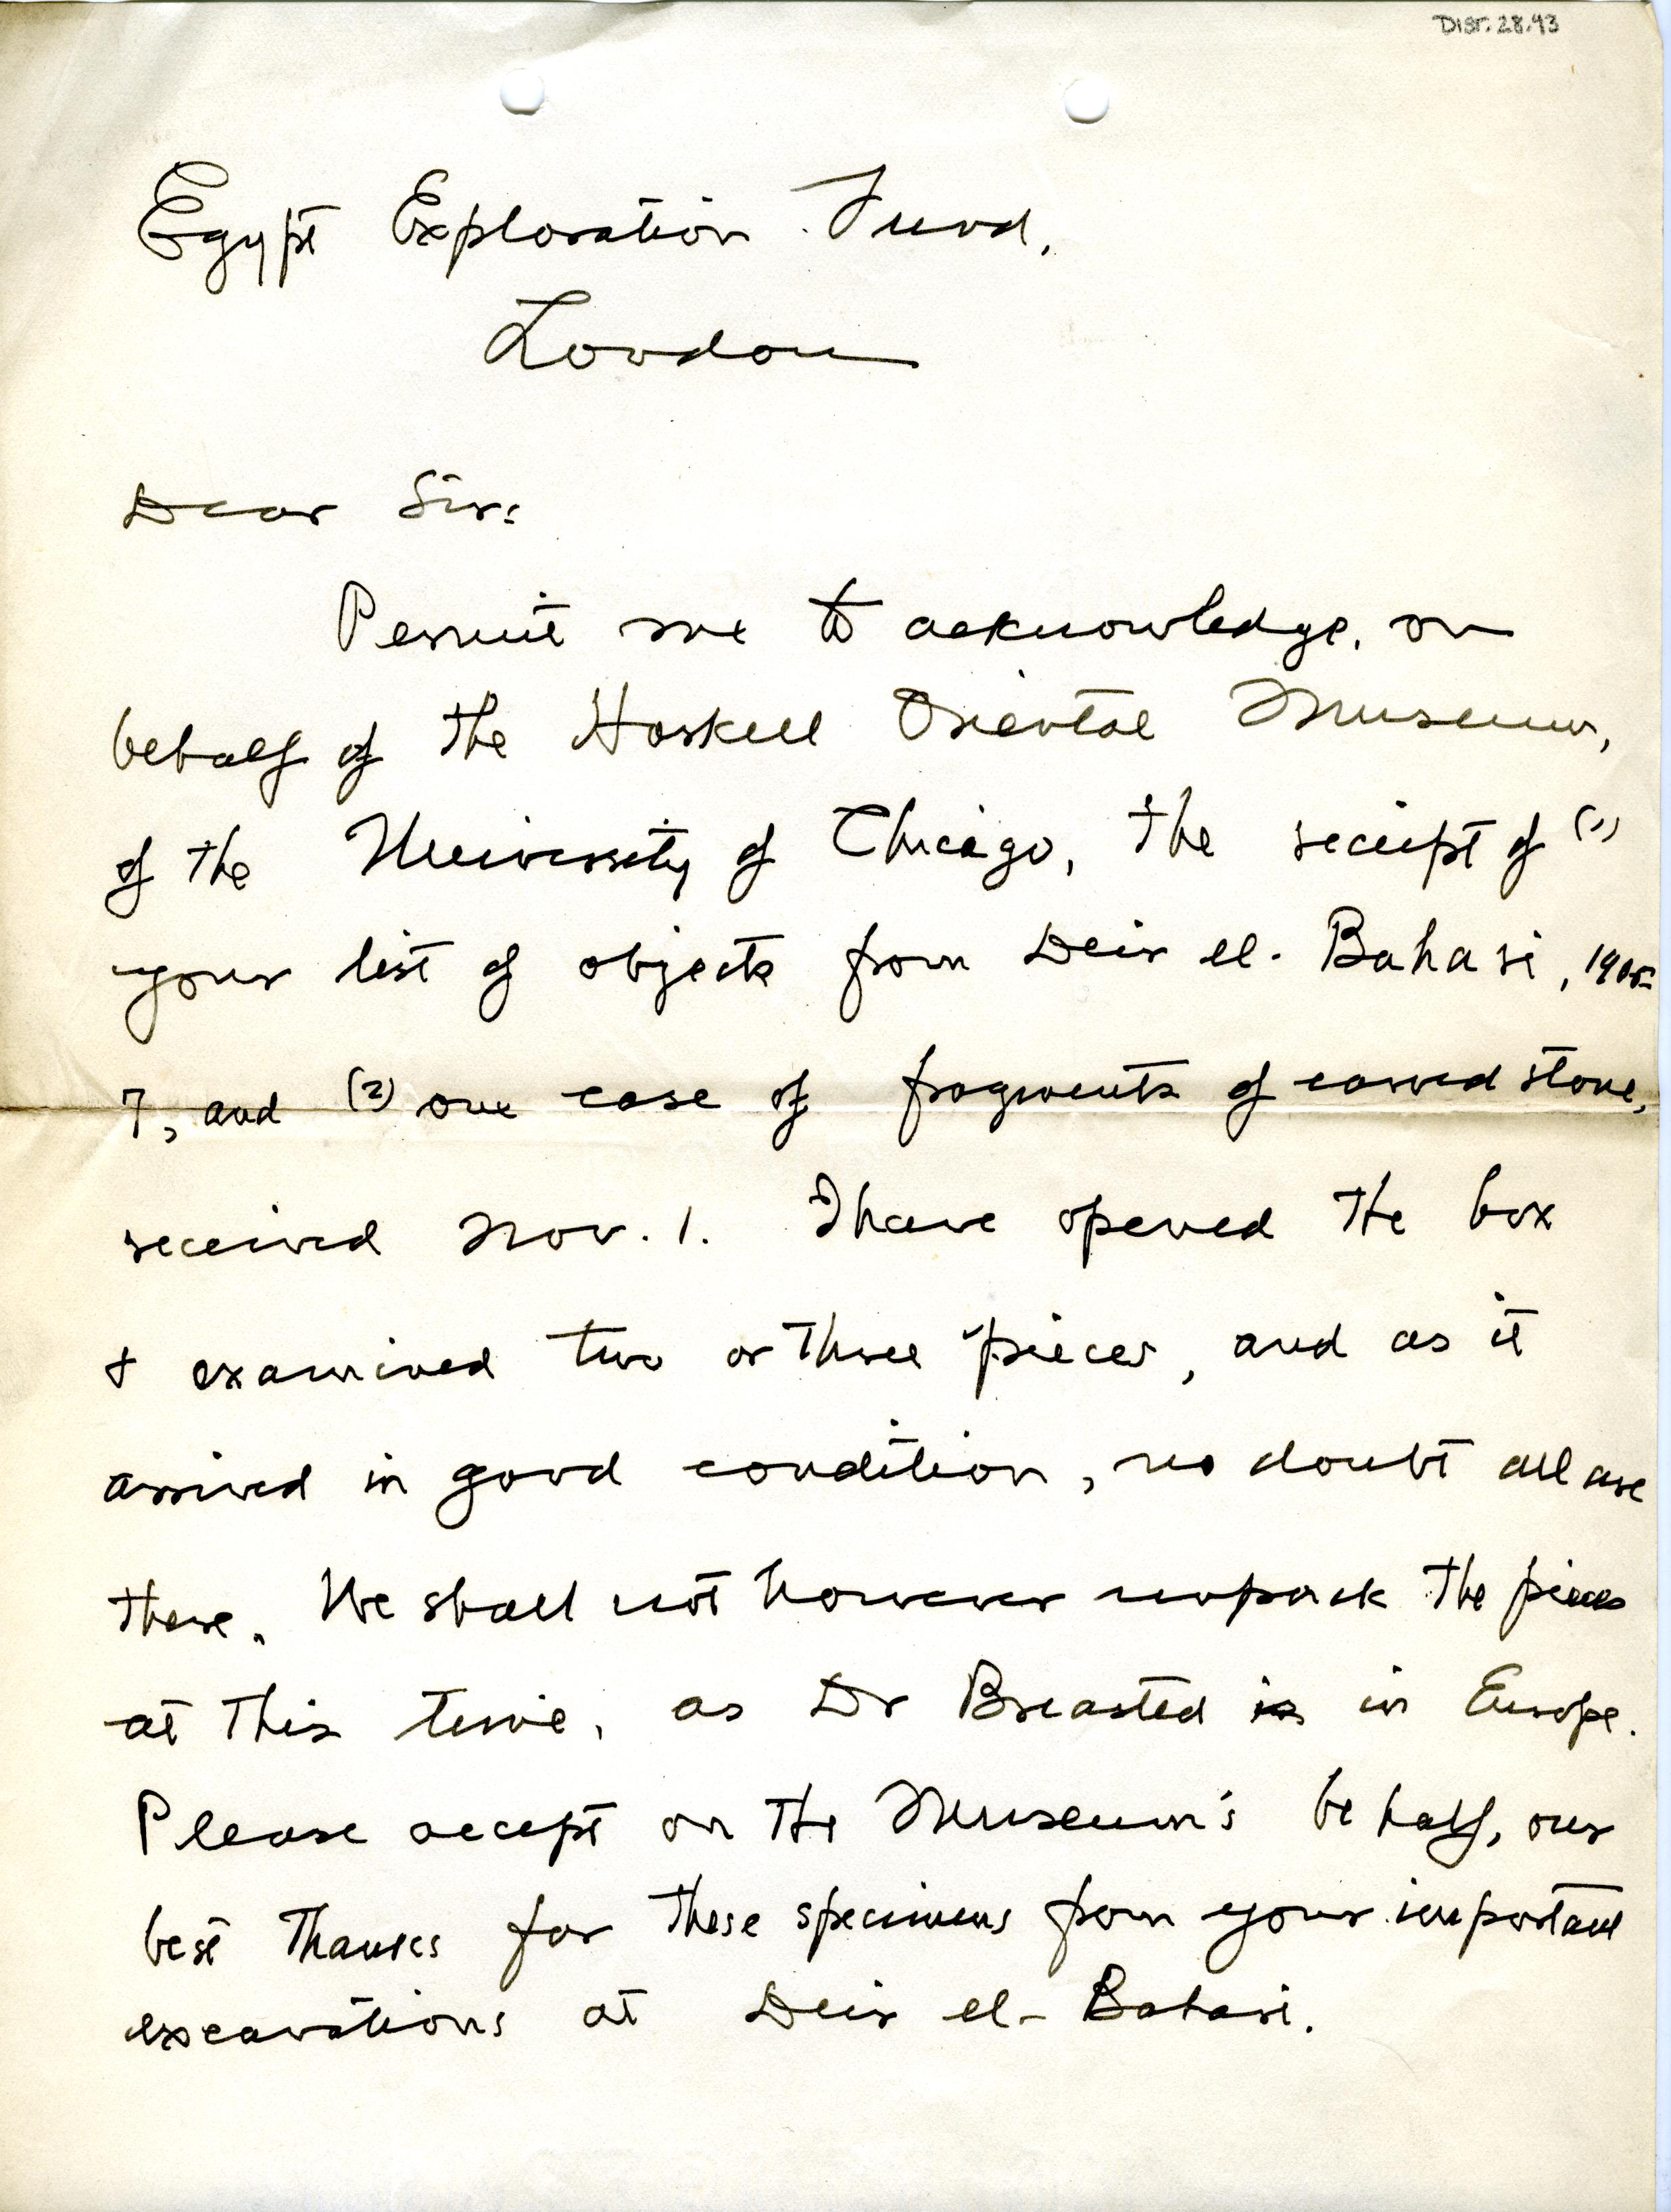 DIST. 28.43
Egypt Exploration Fund,
London
Dear Sir:
Permit me to acknowledge, on
behalf of the Haskell Oriental Museum,
of the University of Chicago, the receipt of (1)
your list of objects from Deir el-Bahari, 1905-
7, and (2) one case of fragments of carved stone,
received Nov. 1. I have opened the box
& examined two or three pieces, and as it
arrived in good condition, no doubt all are
there. We shall not however unpack the pieces
at this time, as Dr Breasted is in Europe.
Please accept on the Museum's behalf, our
best thanks for these specimens from your important
excavations at Deir el-Bahari.